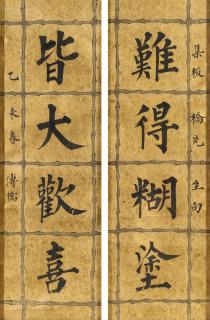 難得糊塗
集板橋先生句
皆大歡喜
乙未春
溥儒